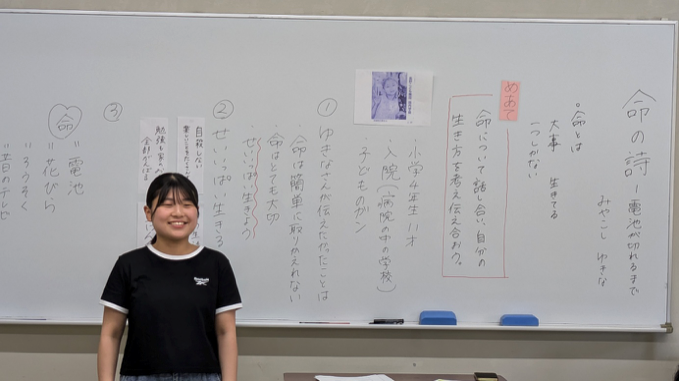 命の詩ー電池が切れるまで
みやこし ゆきな
。命とは
大事 生きてる
一つしかない
めあて
命について話し合い、自分の
生き方を考え伝え合おう。
・小学4年生 11才
・入院(病院の中の学校)
・子どものガン
① ゆきなさんが伝えたかったことは
・命は簡単に取りかえれない
・命はとても大切
・せいいっぱい生きよう
② せいいっぱい生きる
自殺しない
③
命
"電池
"花びら
"ろうそく
"昔のテレビ